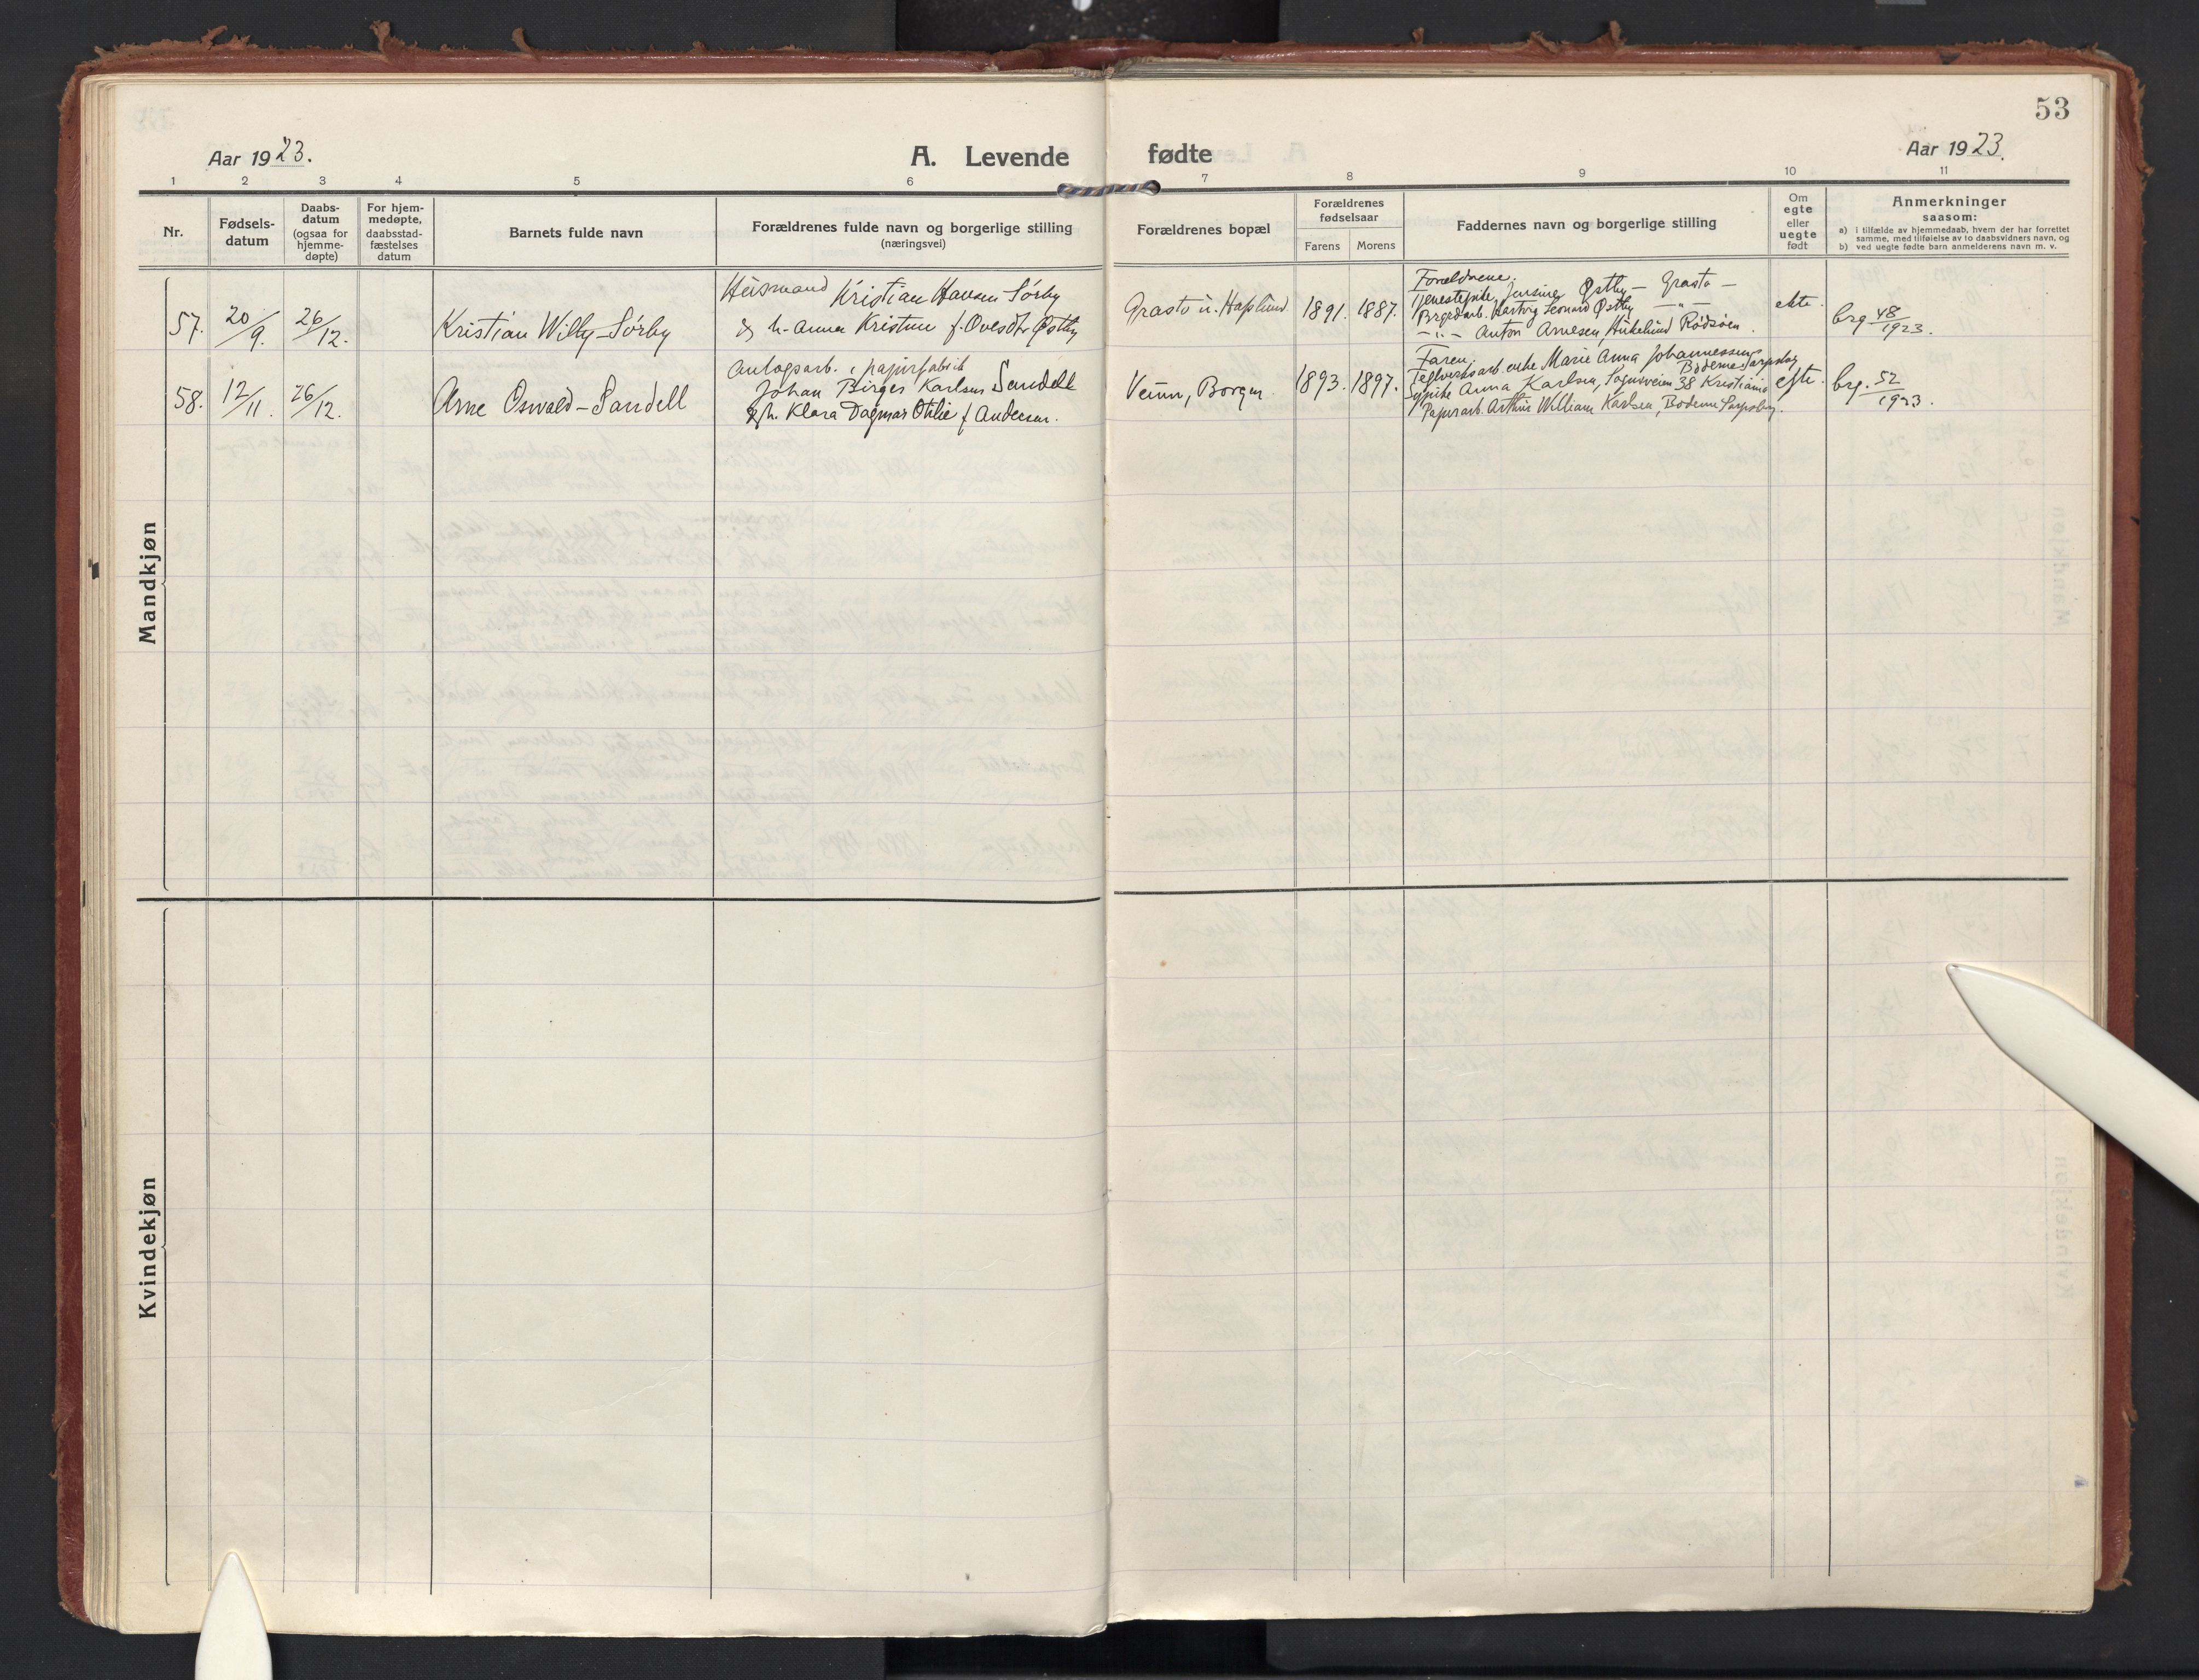 53
Aar 1923.
A. Levende fødte
Aar 1923.
1 2 3 4 5 6 7 8 9 10 11
Nr.
Fødsels-
datum
Daabs-
datum
(ogsaa for
hjemme-
døpte)
For hjem-
medøpte,
daabsstad-
fæstelses
datum
Barnets fulde navn
Forældrenes fulde navn og borgerlige stilling
(næringsvei)
Forældrenes bopæl
Forældrenes
fødselsaar
Farens Morens
Faddernes navn og borgerlige stilling
Om
egte
eller
uegte
født
Anmerkninger
saasom:
a) i tilfælde av hjemmedaab, hvem der har forrettet
samme, med tilføielse av to daabsvidners navn, og
b) ved uegte fødte barn anmelderens navn m. v.
Mandkjøn
57. 20/9. 26/12.
Kristian Willy Sørby
Husmand Kristian Hansen Sørby
& h. Anna Kristine f. Ovesdtr Østby
Grasto u. Haslund
1891. 1887.
Forældrene.
Tjenestepike Jensine Østby – Grasto –
Hartvig Leonard Østby – " –
– " – Anton Arnesen, Rødsøen.
ekte.
brg 48/1923.
58. 12/11. 26/12.
Arne Oswald Sandell
Anlægsarb. i papirfabrik
Johan Birger Karlsen Sandell
& h. Klara Dagmar Otilie f. Andersen.
Venn, Borgen.
1893. 1897.
Faren.
enke Marie Anna Johannessen,
Boderne Sarpsborg
Sypike Anna Karlsen, Sognsveien 38 Kristiania
Papirarb. Arthur William Karlsen, Boderne Sarpsborg.
ekte.
brg. 52/1923.
Kvindekjøn